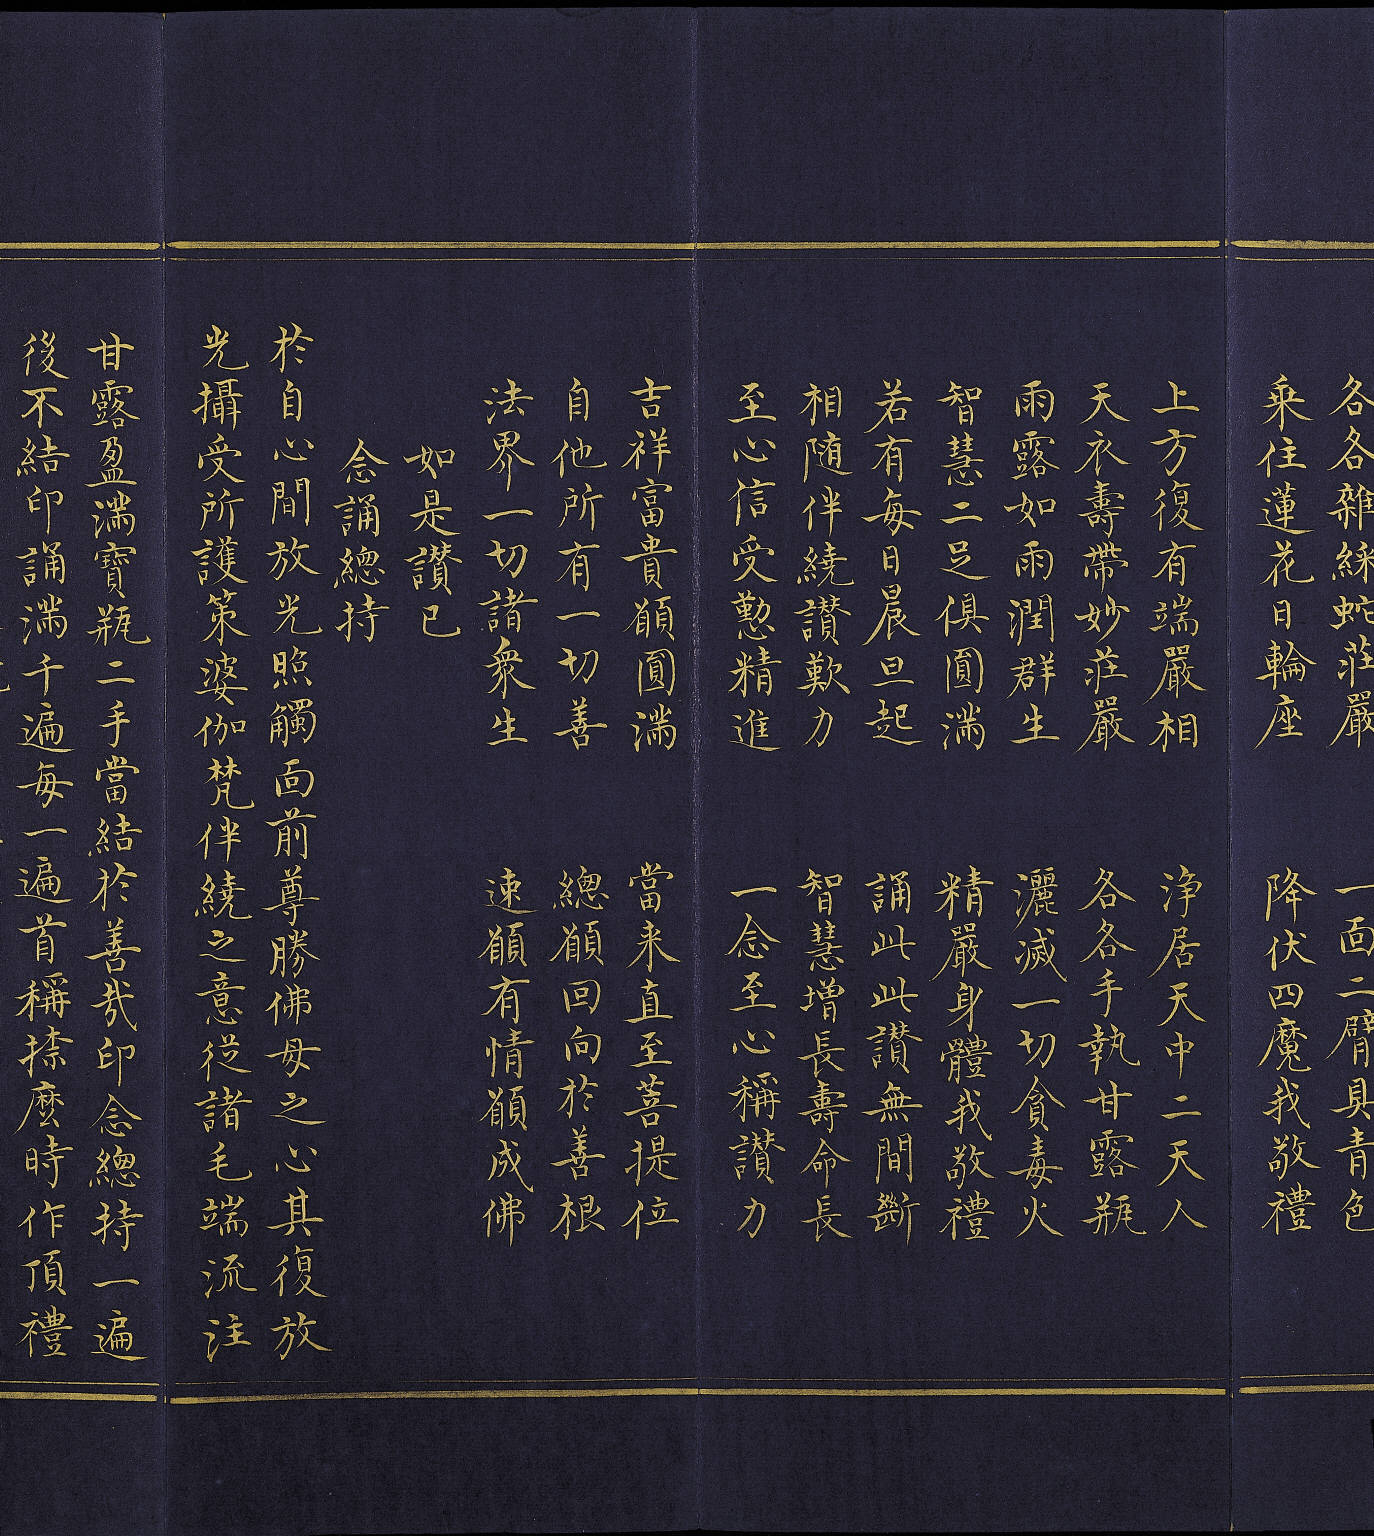 各各雜綵蛇莊嚴　一面二臂具青色
乗住蓮花日輪座　降伏四魔我敬禮
上方復有端嚴相　淨居天中二天人
天衣壽帶妙莊嚴　各各手執甘露瓶
雨露如雨潤群生　灑滅一切貪毒火
智慧二足俱圓滿　精嚴身體我敬禮
若有每日晨旦起　誦此此讃無間斷
相随伴繞讃歎力　智慧增長壽命長
至心信受懃精進　一念至心稱讃力
吉祥富貴願圓滿　當来直至菩提位
自他所有一切善　總願回向於善根
法界一切諸衆生　速願有情願成佛
如是讃已
念誦總持
於自心間放光照觸面前尊勝佛母之心其復放
光攝受所護策婆伽梵伴繞之意從諸毛端流注
甘露盈滿寶瓶二手當結於善哉印念總持一遍
後不結印誦滿千遍每一遍首稱捺麼時作頂禮